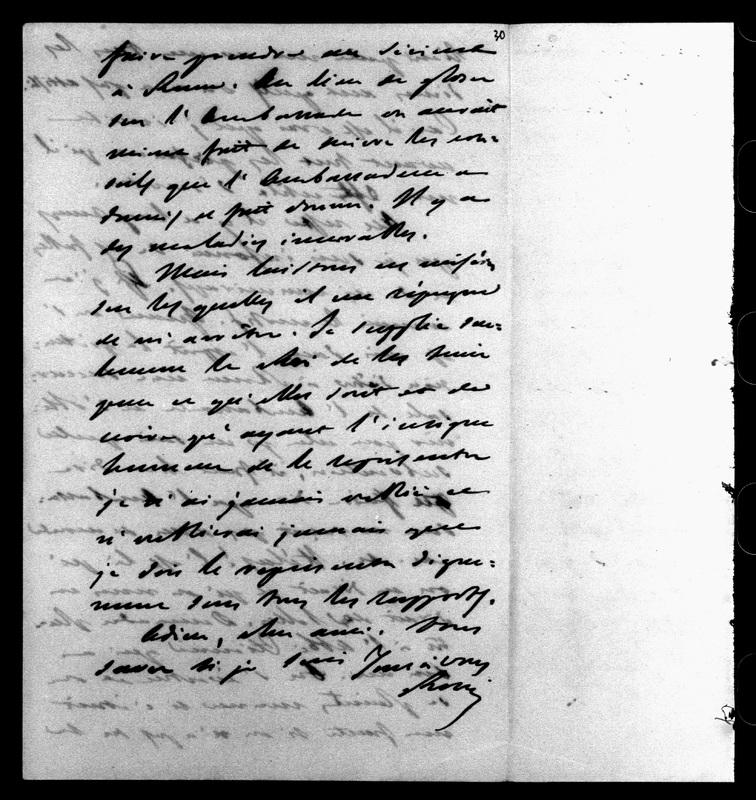 30
faire prendre au sérieux
à Rome. Au lieu de gloser
sur l'Ambassade on aurait
mieux fait de suivre les con=
seils que l'Ambassadeur a
donnés et fait donner. Il y a
des maladies incurables.
Mais laissons ces misères
sur les quelles il me répugne
de m'arrêter. Je supplie seu=
lement le Roi de les tenir
pour ce qu'elles sont et de
croire qu'ayant l'insigne
honneur de le représenter
je n'ai jamais oublié et
n'oublierai jamais que
je dois le représenter digne=
ment sous tous les rapports.
Adieu, cher ami. Vous
savez si je suis Tout à vous
Rossi